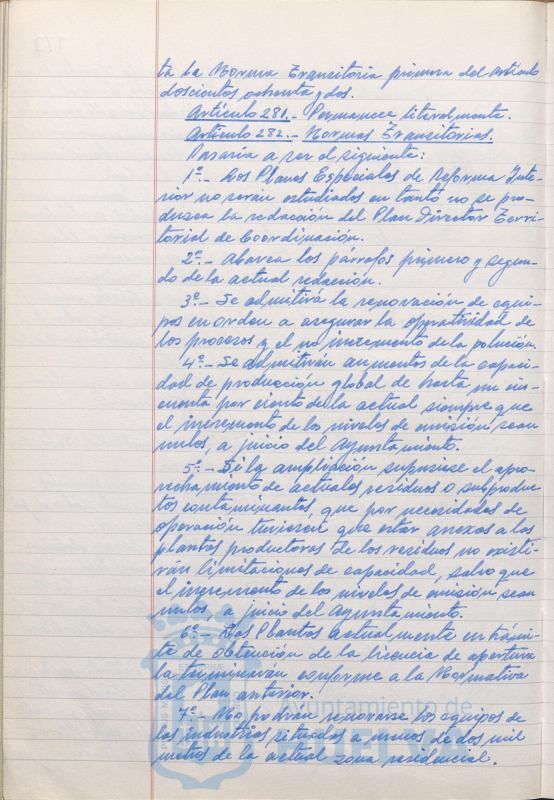 ta la Norma Transitoria primera del artículo
doscientos ochenta y dos.
Artículo 281.- Permanece literalmente.
Artículo 282.- Normas Transitorias.
Pasaría a ser el siguiente:
1º.- Los Planes Especiales de Reforma Inte-
rior no serán estudiados en tanto no se pro-
duzca la redacción del Plan Director Terri-
torial de Coordinación.
2º.- Abarca los párrafos primero y segun-
do de la actual redacción.
3º.- Se admitirá la renovación de equi-
pos en orden a asegurar la operatividad de
los procesos y el no incremento de la polución.
4º.- Se admitirán aumentos de la capaci-
dad de producción global de hasta un cin-
cuenta por ciento de la actual siempre que
el incremento de los niveles de emisión sean
nulos, a juicio del Ayuntamiento.
5º.- Si la ampliación supusiese el apro-
vechamiento de actuales residuos o subproduc-
tos contaminantes, que por necesidades de
operación tuviesen que estar anexos a las
plantas productoras de los residuos no existi-
rán limitaciones de capacidad, salvo que
el incremento de los niveles de emisión sean
nulos, a juicio del Ayuntamiento.
6º.- Las Plantas actualmente en trámi-
te de obtención de la licencia de apertura
la terminarán conforme a la Normativa
del Plan anterior.
7º.- No podrán renovarse los equipos de
las industrias situadas a menos de dos mil
metros de la actual zona residencial.
Ayuntamiento de
HUELVA